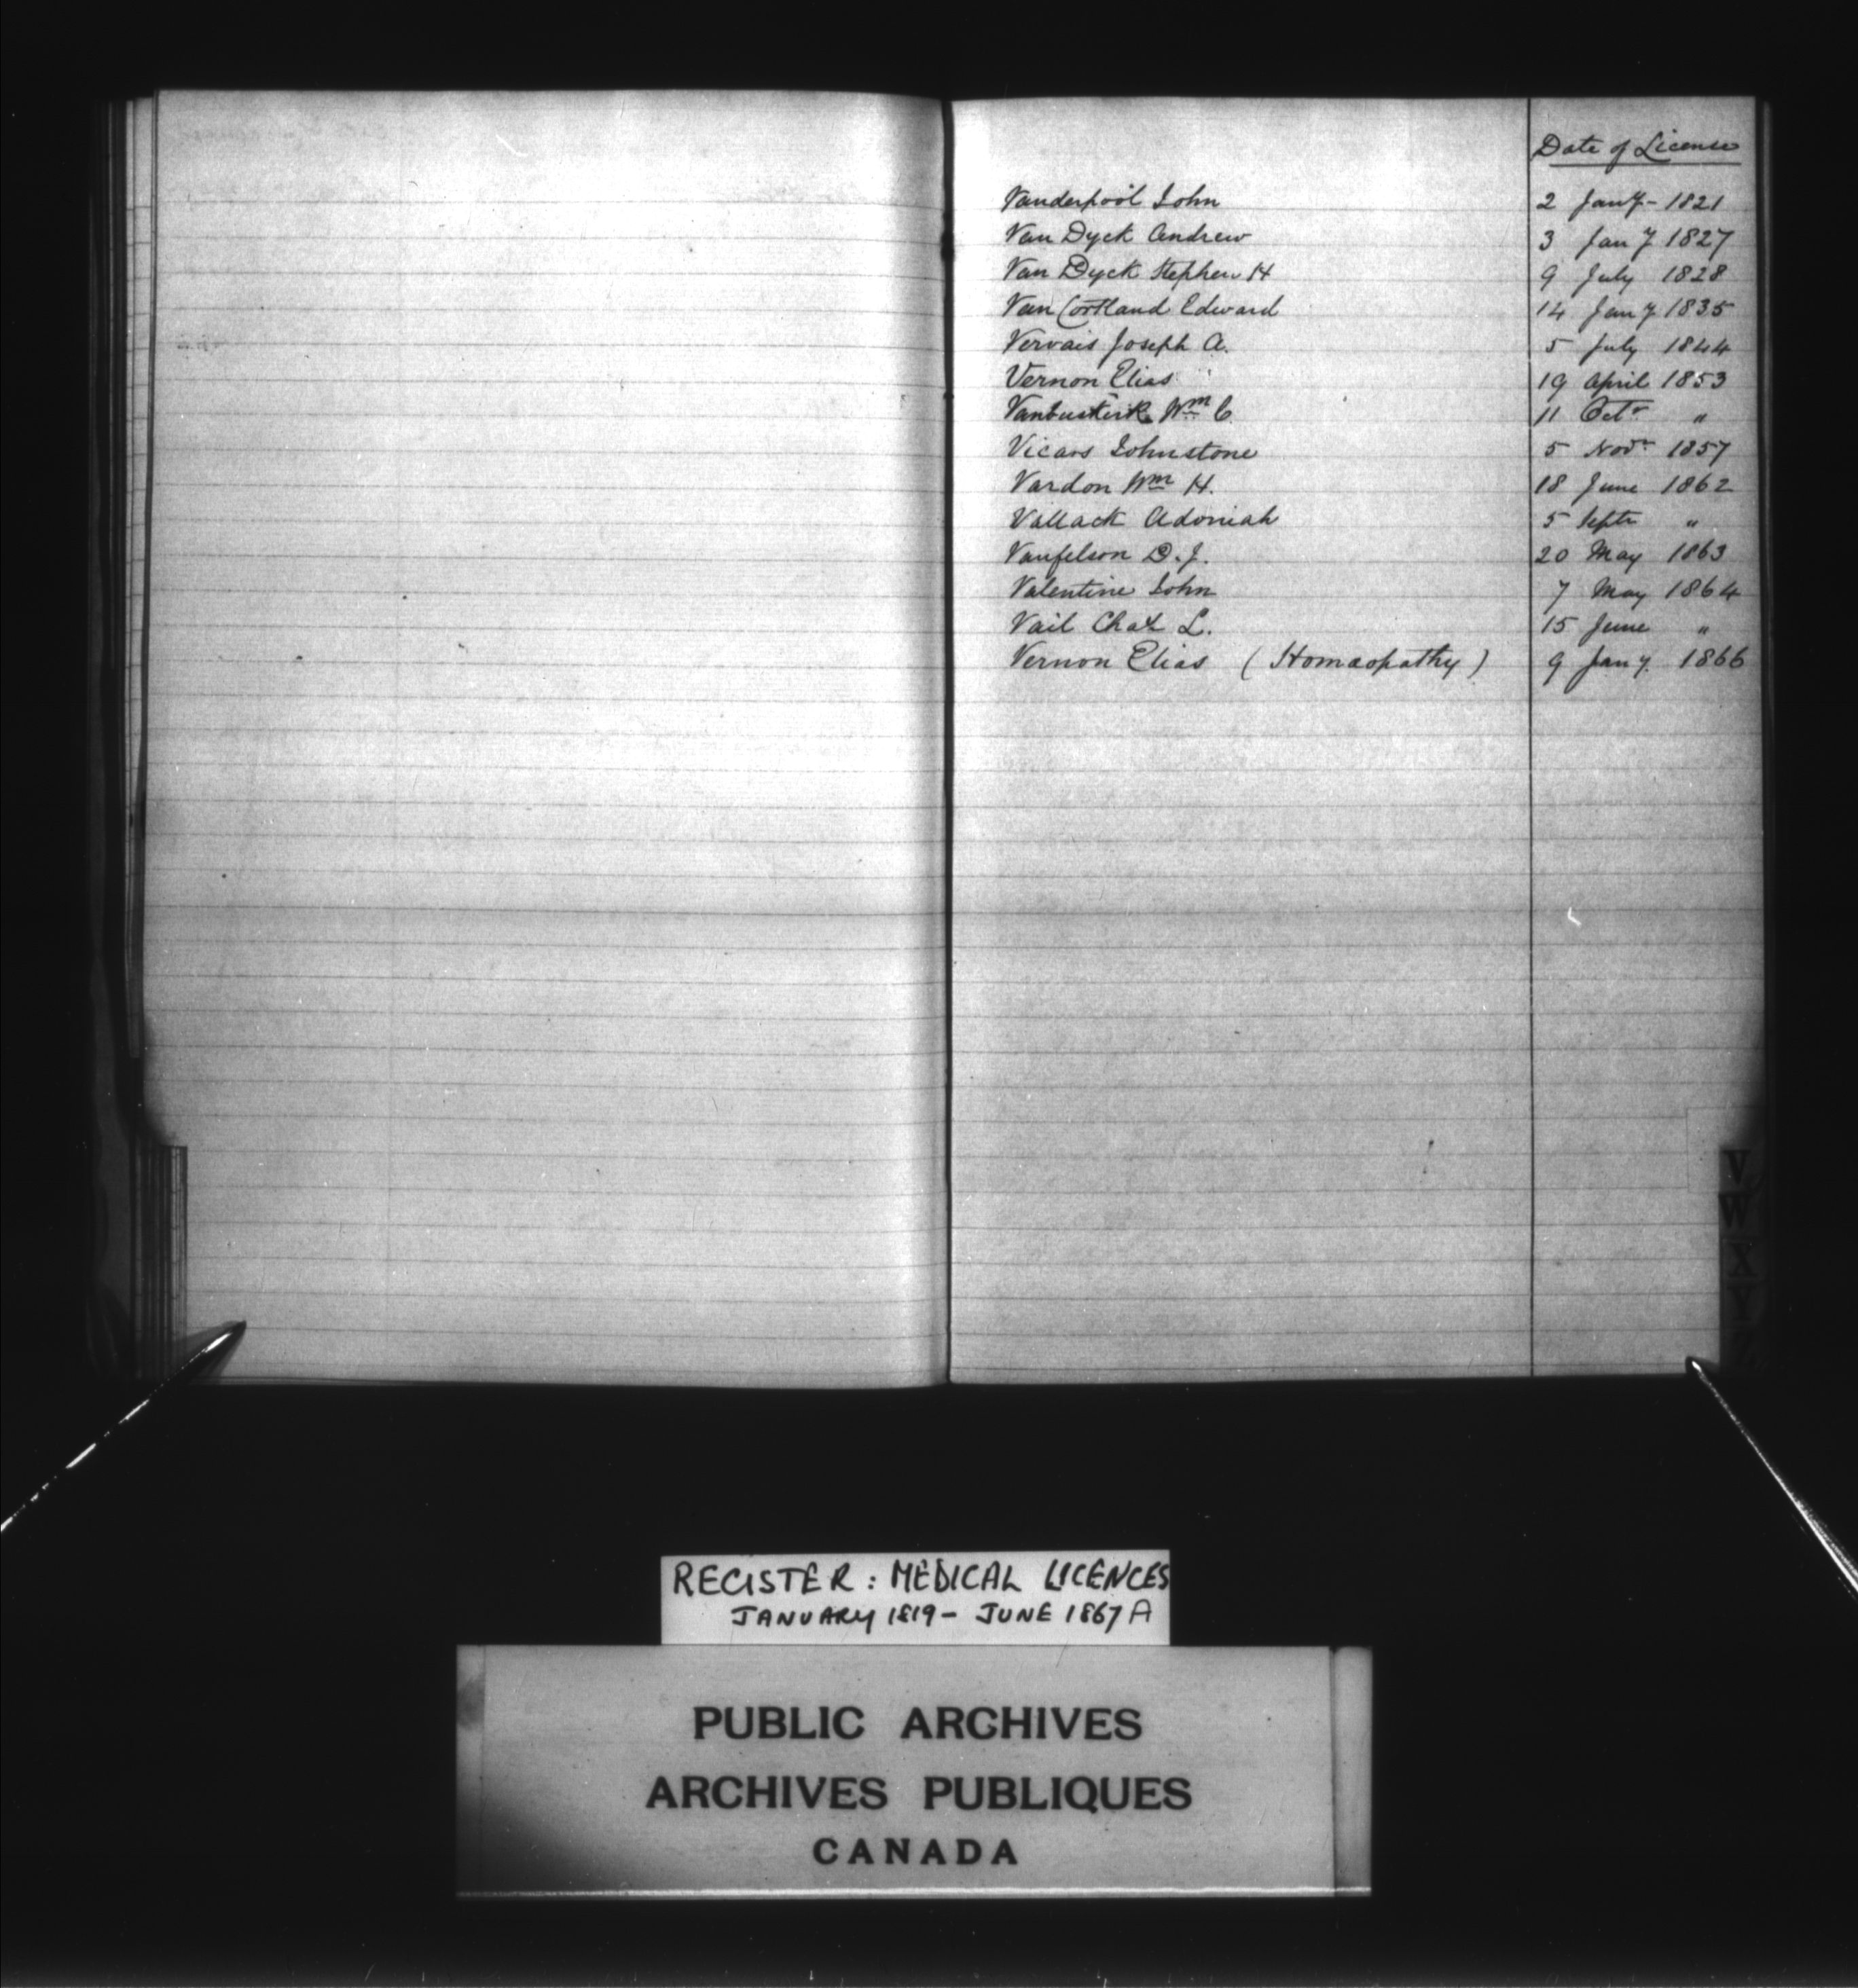 Date of License
Vanderpool John 2 Jany - 1821
Van Dyck Andrew 3 Jany 1827
Van Dyck Stephen H 9 July 1828
Van Cortland Edward 14 Jany 1835
Vervais Joseph A. 5 July 1844
Vernon Elias 19 April 1853
Vanbuskirk Wm C. 11 Octr "
Vicars Johnstone 5 Novr 1857
Vardon Wm H. 18 June 1862
Vallack Adoniah 5 Septr "
Vanfelson D. J. 20 May 1863
Valentine John 7 May 1864
Vail Chas L. 15 June "
Vernon Elias (Homœopathy) 9 Jany. 1866
V
W
X
Y
Z
REGISTER: MEDICAL LICENCES
JANUARY 1819 - JUNE 1867 A
PUBLIC ARCHIVES
ARCHIVES PUBLIQUES
CANADA